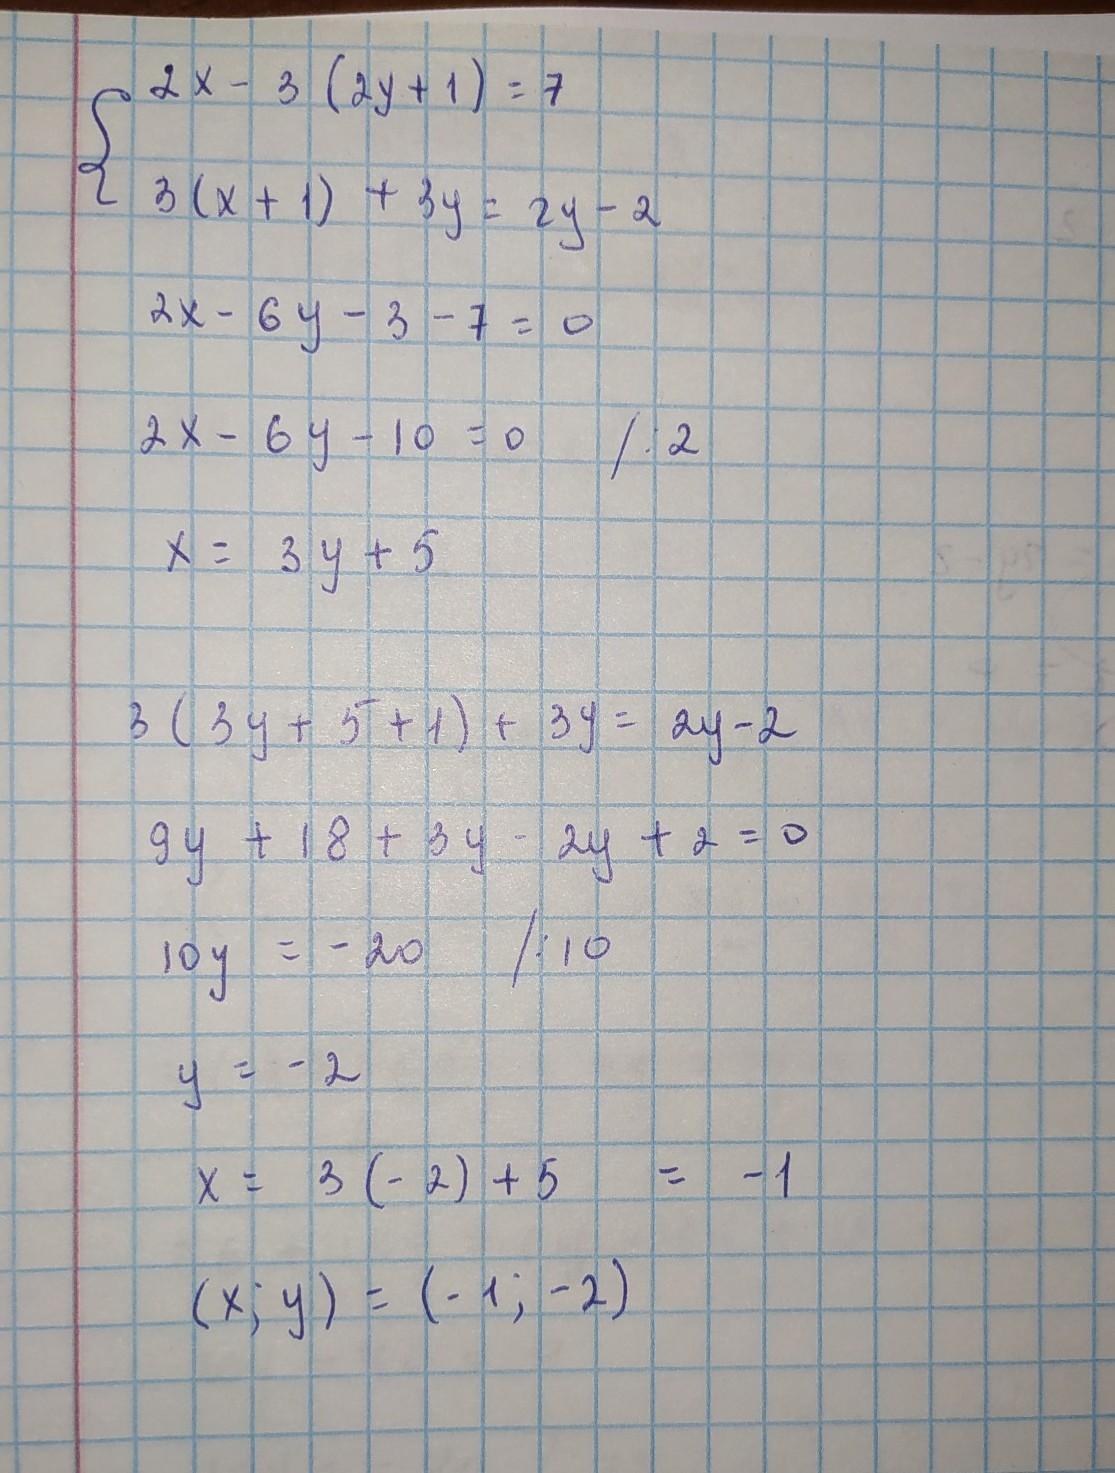 { 2x - 3 (2y + 1) = 7
3(x + 1) + 3y = 2y - 2
2x - 6y - 3 - 7 = 0
2x - 6y - 10 = 0 / : 2
x = 3y + 5
3 (3y + 5 + 1) + 3y = 2y - 2
9y + 18 + 3y - 2y + 2 = 0
10y = -20 / : 10
y = -2
x = 3 (-2) + 5 = -1
(x; y) = (-1; -2)